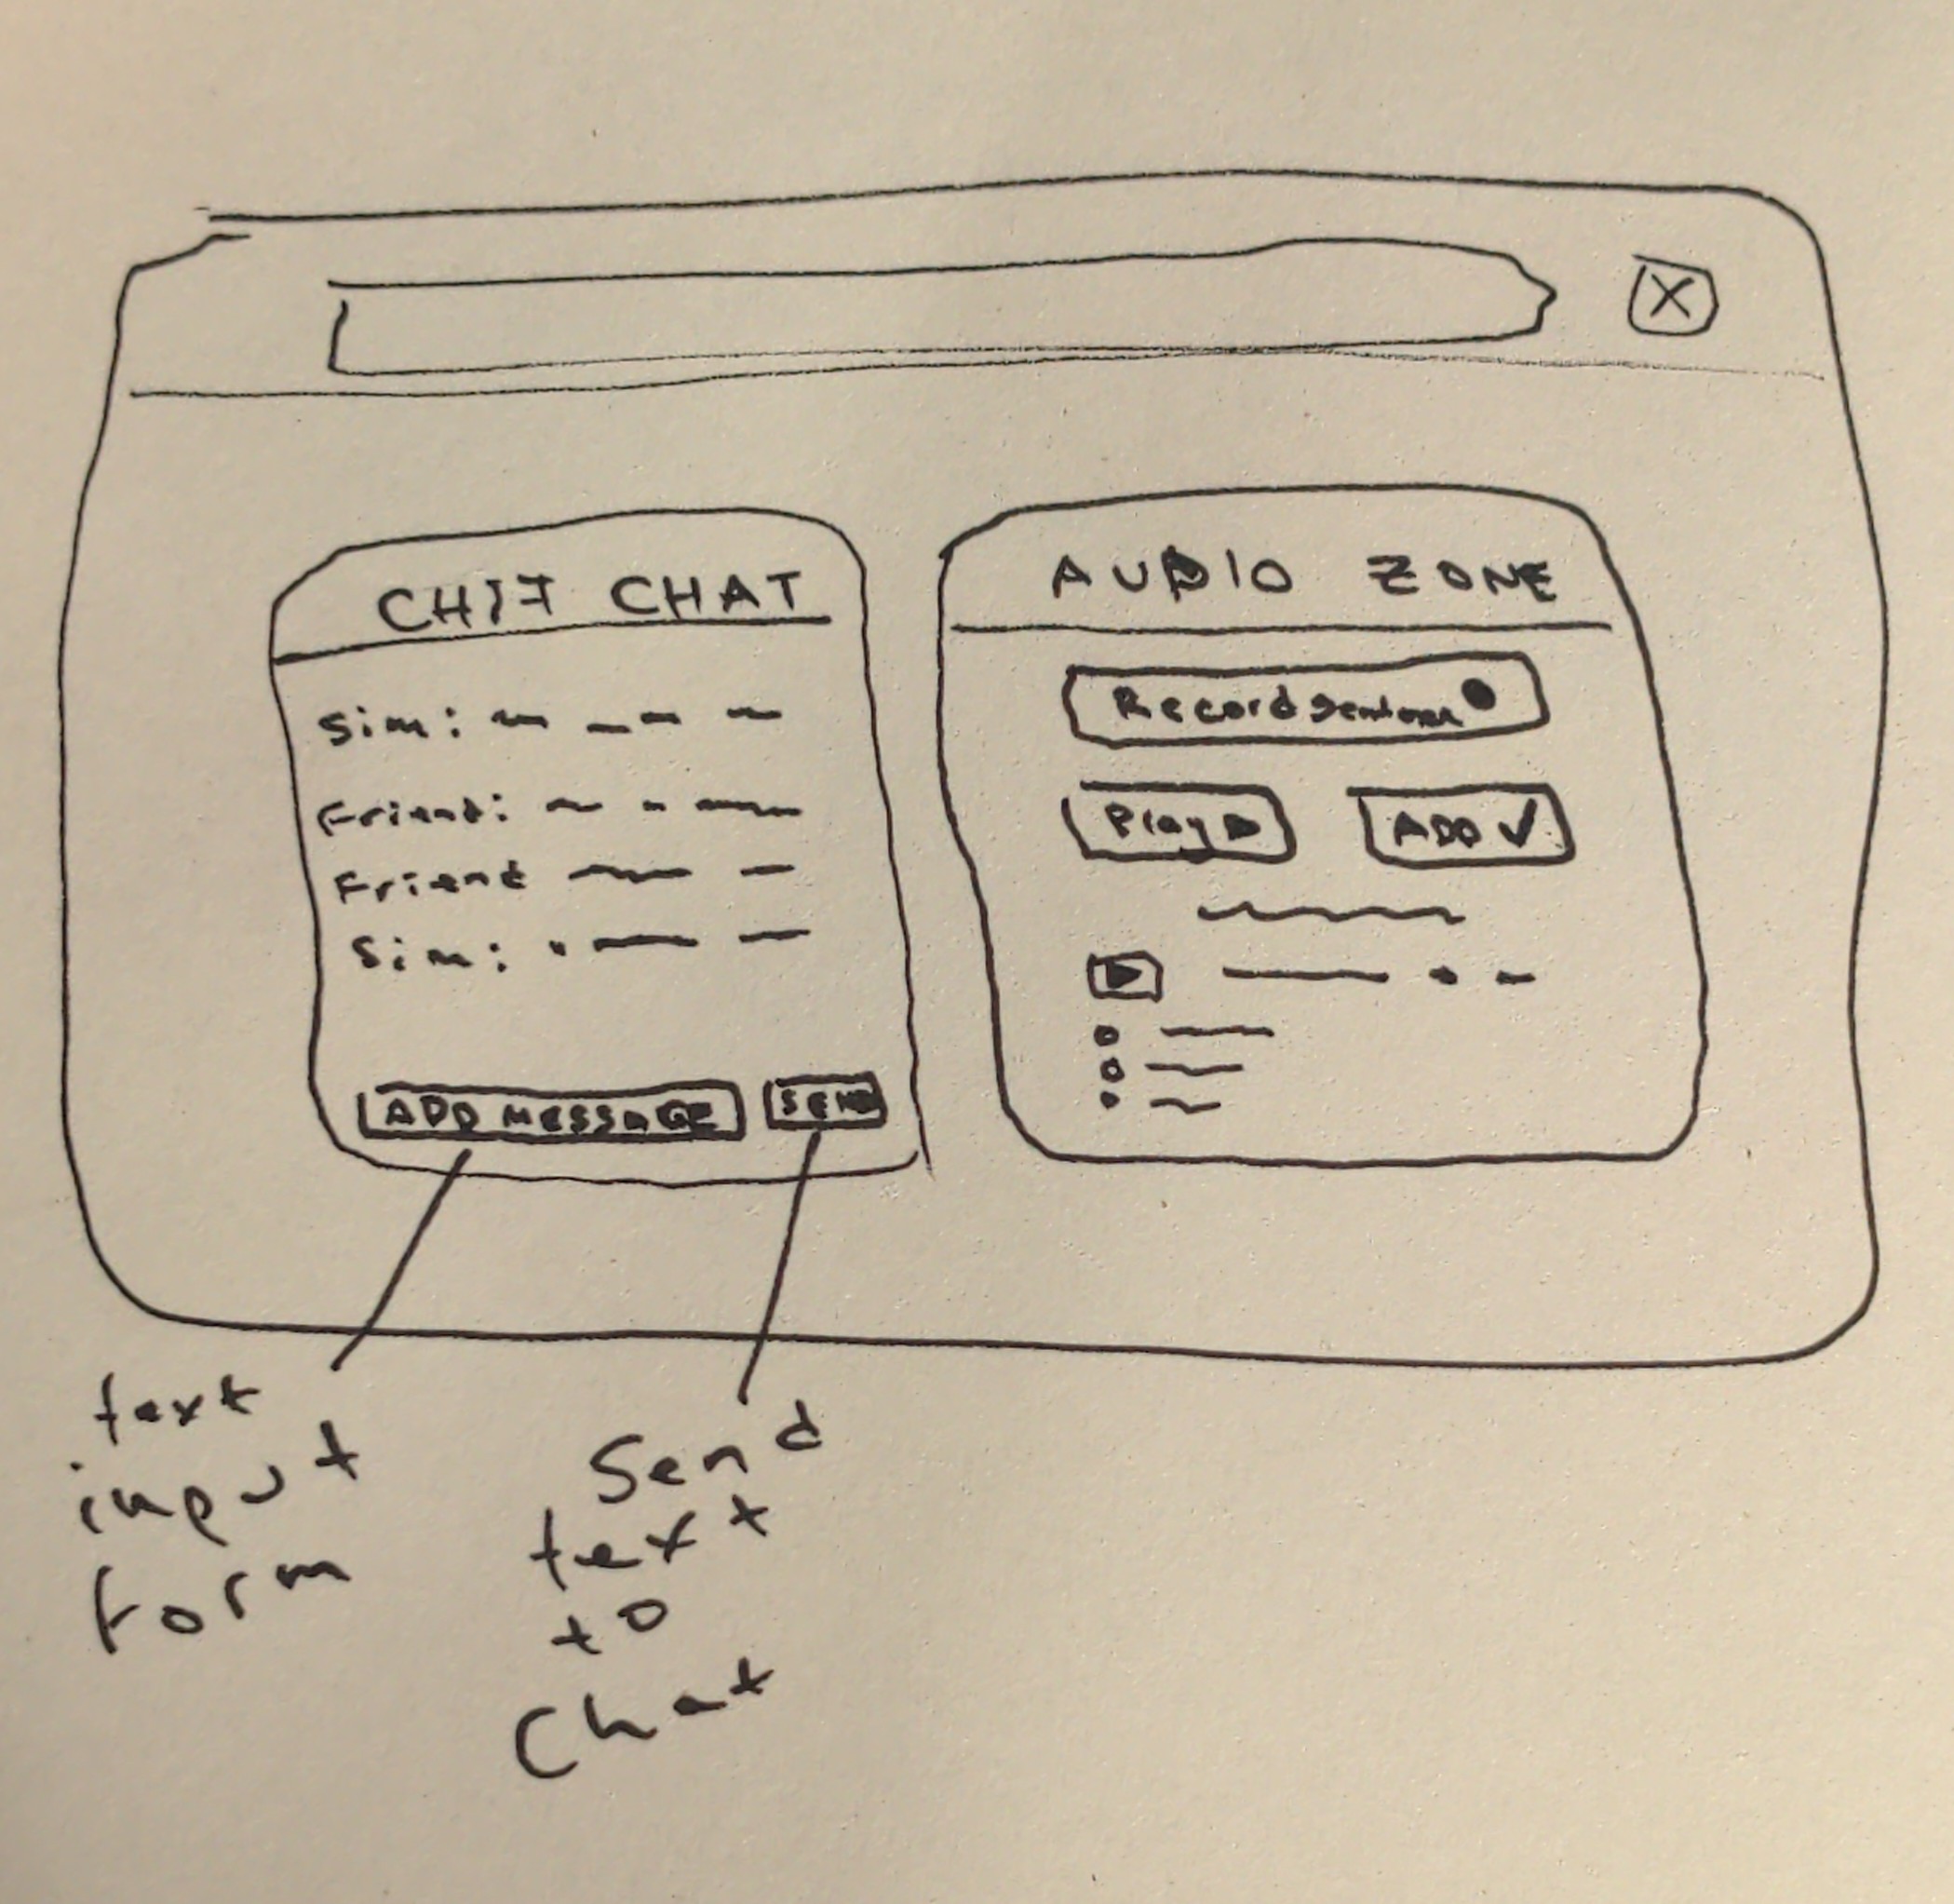 X
CHIT CHAT
Sim:
Friend:
Friend
Sim:
ADD MESSAGE
SEND
AUDIO ZONE
Record
Play
ADD ✓
text
input
form
Send
text
to
Chat